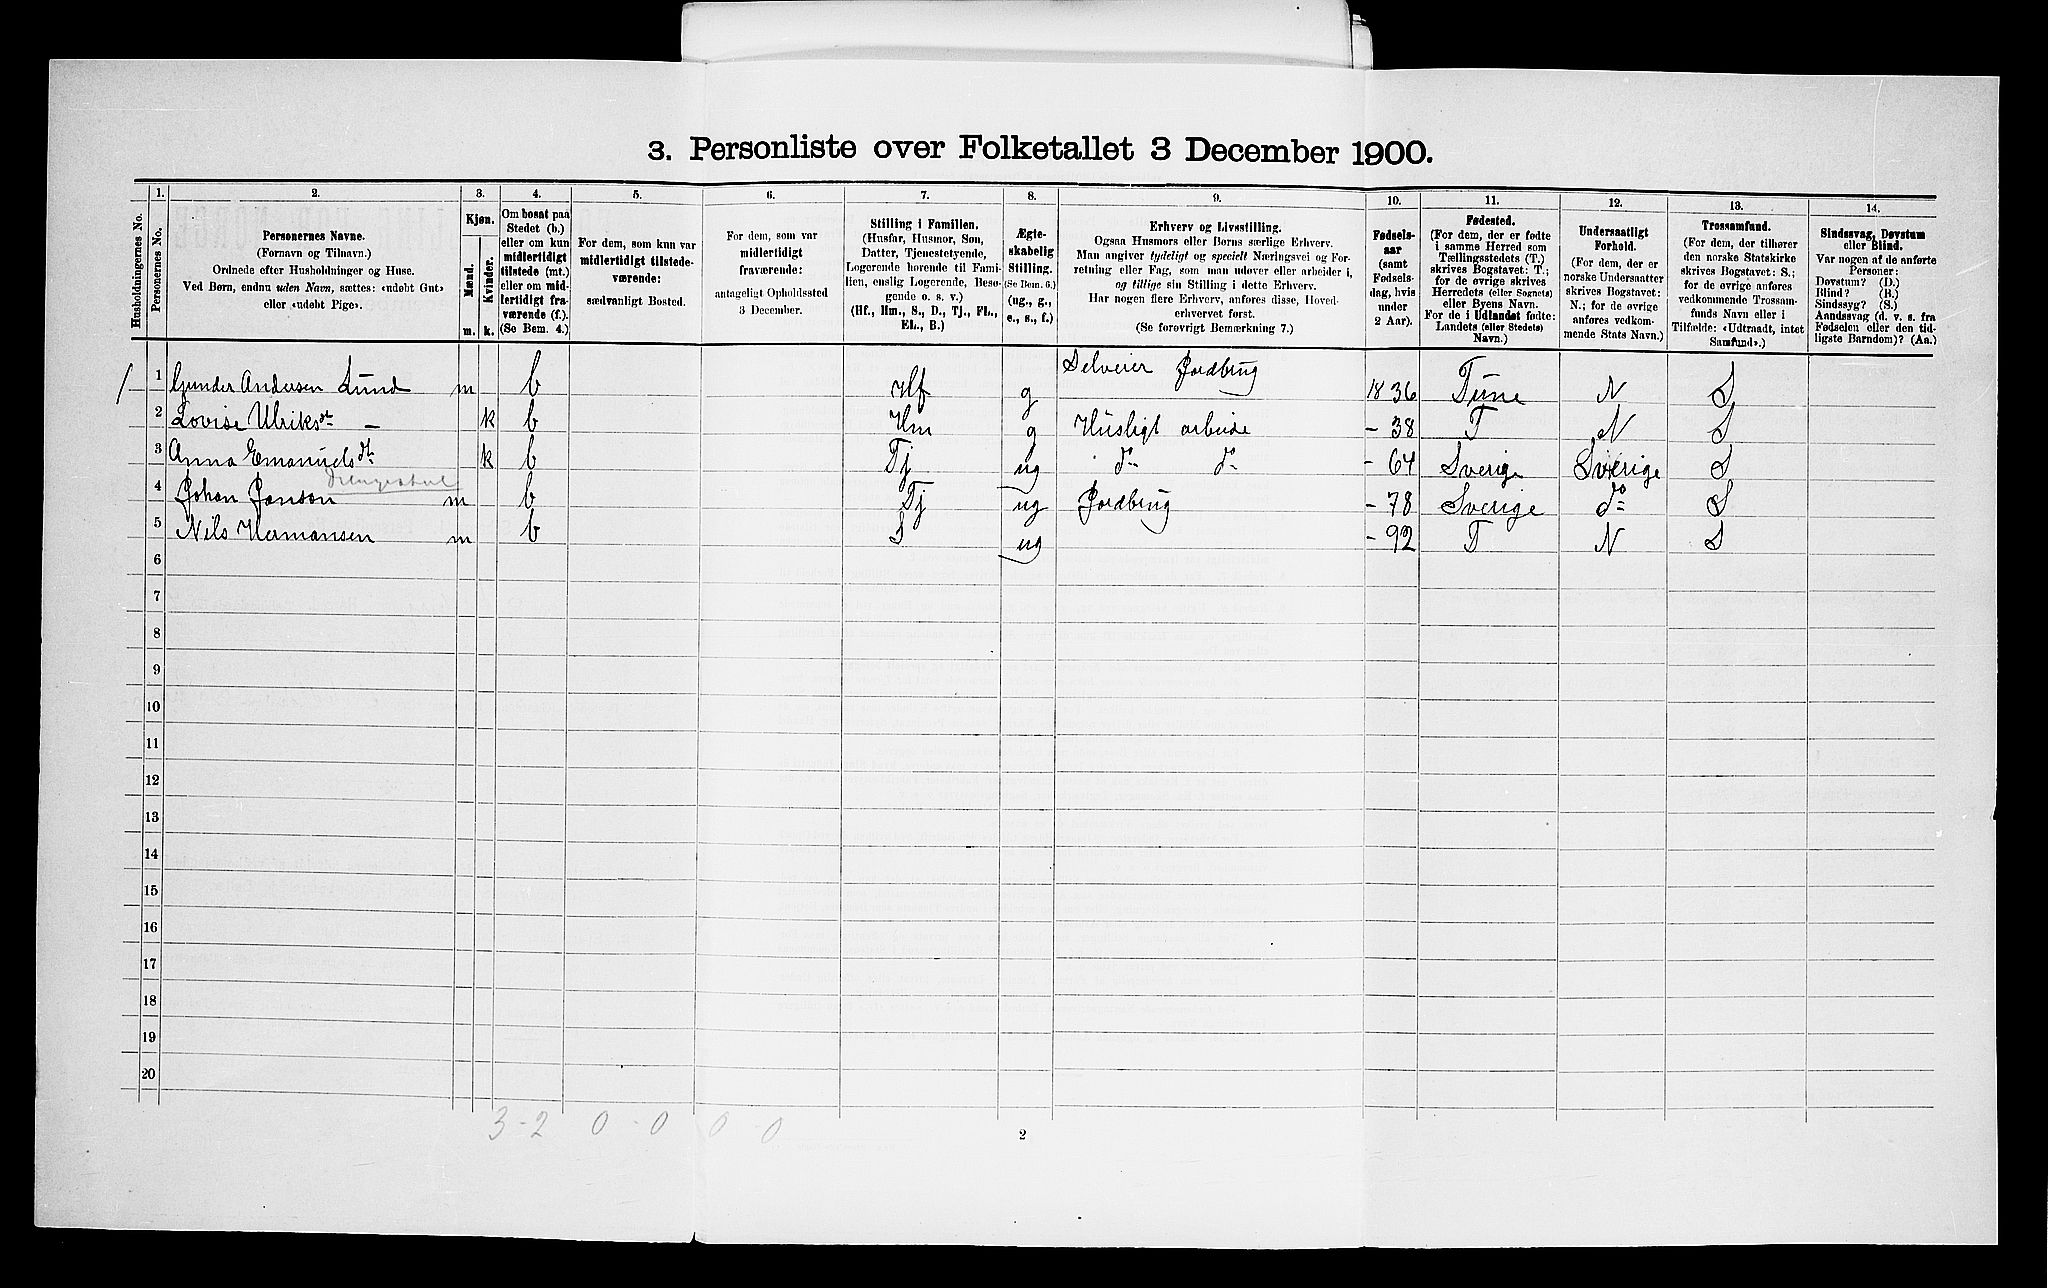 3. Personliste over Folketallet 3 December 1900.
Husholdningernes No.
1.
Personernes No.
2.
Personernes Navne.
(Fornavn og Tilnavn.)
Ordnede efter Husholdninger og Huse.
Ved Børn, endnu uden Navn, sættes: «udøbt Gut»
eller «udøbt Pige».
3.
Kjøn.
Mænd.
Kvinder.
m.
k.
4.
Om bosat paa
Stedet (b.)
eller om kun
midlertidigt
tilstede (mt.)
eller om mid-
lertidigt fra-
værende (f.).
(Se Bem. 4.)
5.
For dem, som kun var
midlertidigt tilstede-
værende:
sædvanligt Bosted.
6.
For dem, som var
midlertidigt
fraværende:
antageligt Opholdssted
3 December.
7.
Stilling i Familien.
(Husfar, Husmor, Søn,
Datter, Tjenestetyende,
Logerende hørende til Fami-
lien, enslig Logerende, Besø-
gende o. s. v.)
(Hf., Hm., S., D., Tj., FL.,
EL., B.)
8.
Ægte-
skabelig
Stilling.
(Se Bem. 6.)
(ug., g.,
e., s., f.)
9.
Erhverv og Livsstilling.
Ogsaa Husmors eller Børns særlige Erhverv.
Man angiver tydeligt og specielt Næringsvei og For-
retning eller Fag, som man udøver eller arbeider i,
og tillige sin Stilling i dette Erhverv.
Har nogen flere Erhverv, anføres disse, Hoved-
erhvervet først.
(Se forøvrigt Bemærkning 7.)
10.
Fødsels-
aar
(samt
Fødsels-
dag, hvis
under
2 Aar).
11.
Fødested.
(For dem, der er fødte
i samme Herred som
Tællingsstedets (T.)
skrives Bogstavet: T.;
for de øvrige skrives
Herredets (eller Sognets)
eller Byens Navn.
For de i Udlandet fødte:
Landets (eller Stedets)
Navn.)
12.
Undersaatligt
Forhold.
(For dem, der er
norske Undersaatter
skrives Bogstavet:
N.; for de øvrige
anføres vedkom-
mende Stats Navn.)
13.
Trossamfund.
(For dem, der tilhører
den norske Statskirke
skrives Bogstavet: S.;
for de øvrige anføres
vedkommende Trossam-
funds Navn eller i
Tilfælde: «Udtraadt, intet
Samfund».)
14.
Sindssvag, Døvstum
eller Blind.
Var nogen af de anførte
Personer:
Døvstum? (D.)
Blind? (B.)
Sindssyg? (S.)
Aandssvag (d. v. s. fra
Fødselen eller den tid-
ligste Barndom)? (Aa.)
1 1 Gunder Andersen Lund m b Hf g Selveier Jordbrug 1836 Tune N S
2 Lovise Ulriksdt — k b Hm g Husligt arbeide – 38 T N S
3 Anna Emanuelsdt k b Tj ug do do – 64 Sverige Sverige S
4 Johan Janson m b Tj ug Jordbrug – 78 Sverige do S
5 Nils Hermansen m b S ug – 92 T N S
6
7
8
9
10
11
12
13
14
15
16
17
18
19
20
3 - 2 0 - 0 0 - 0
2